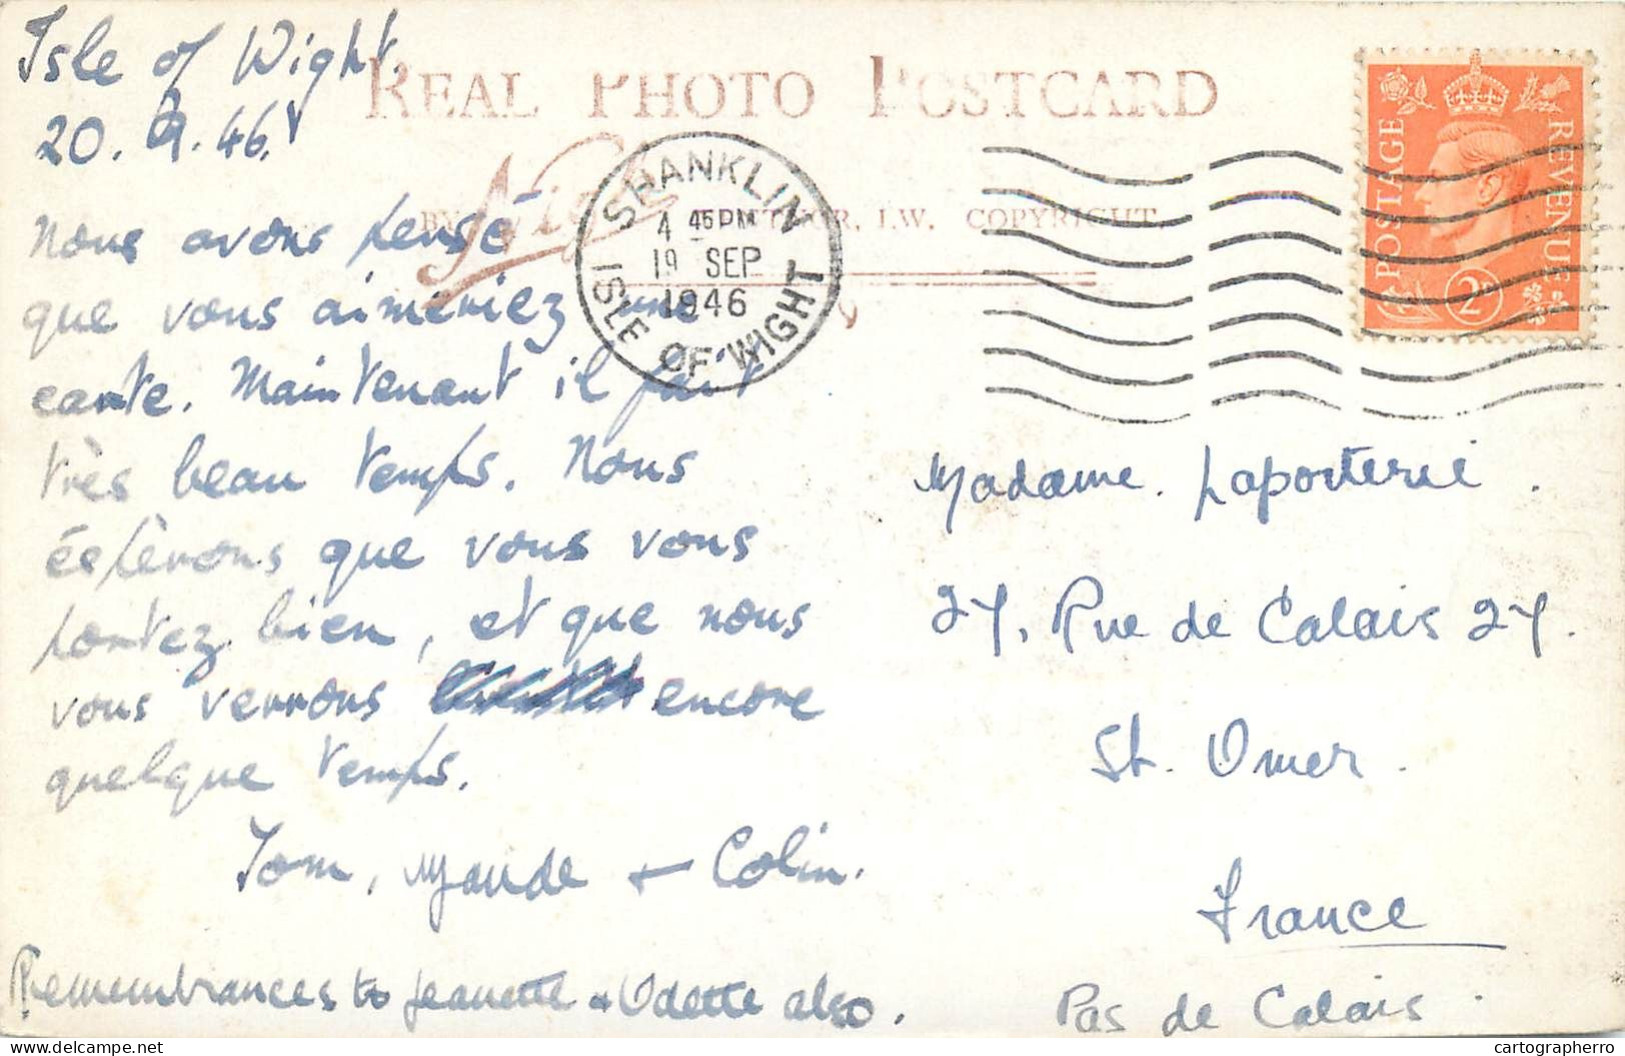 Isle of Wight.
20. 9. 46.
REAL PHOTO POSTCARD
BY Nigh VENTNOR, I.W. COPYRIGHT.
SHANKLIN
4 45 PM
19 SEP
1946
ISLE OF WIGHT
POSTAGE
REVENUE
2D
Nous avons pensé
que vous aimeriez une
carte. Maintenant il fait
très beau temps. Nous
éspèrons que vous vous
portez bien, et que nous
vous verrons encore
quelque temps.
Tom, Maude + Colin.
Remembrances to Jeanette + Odette also.
Madame. Laporterie.
27, Rue de Calais 27.
St. Omer.
France
Pas de Calais.
cartographerro